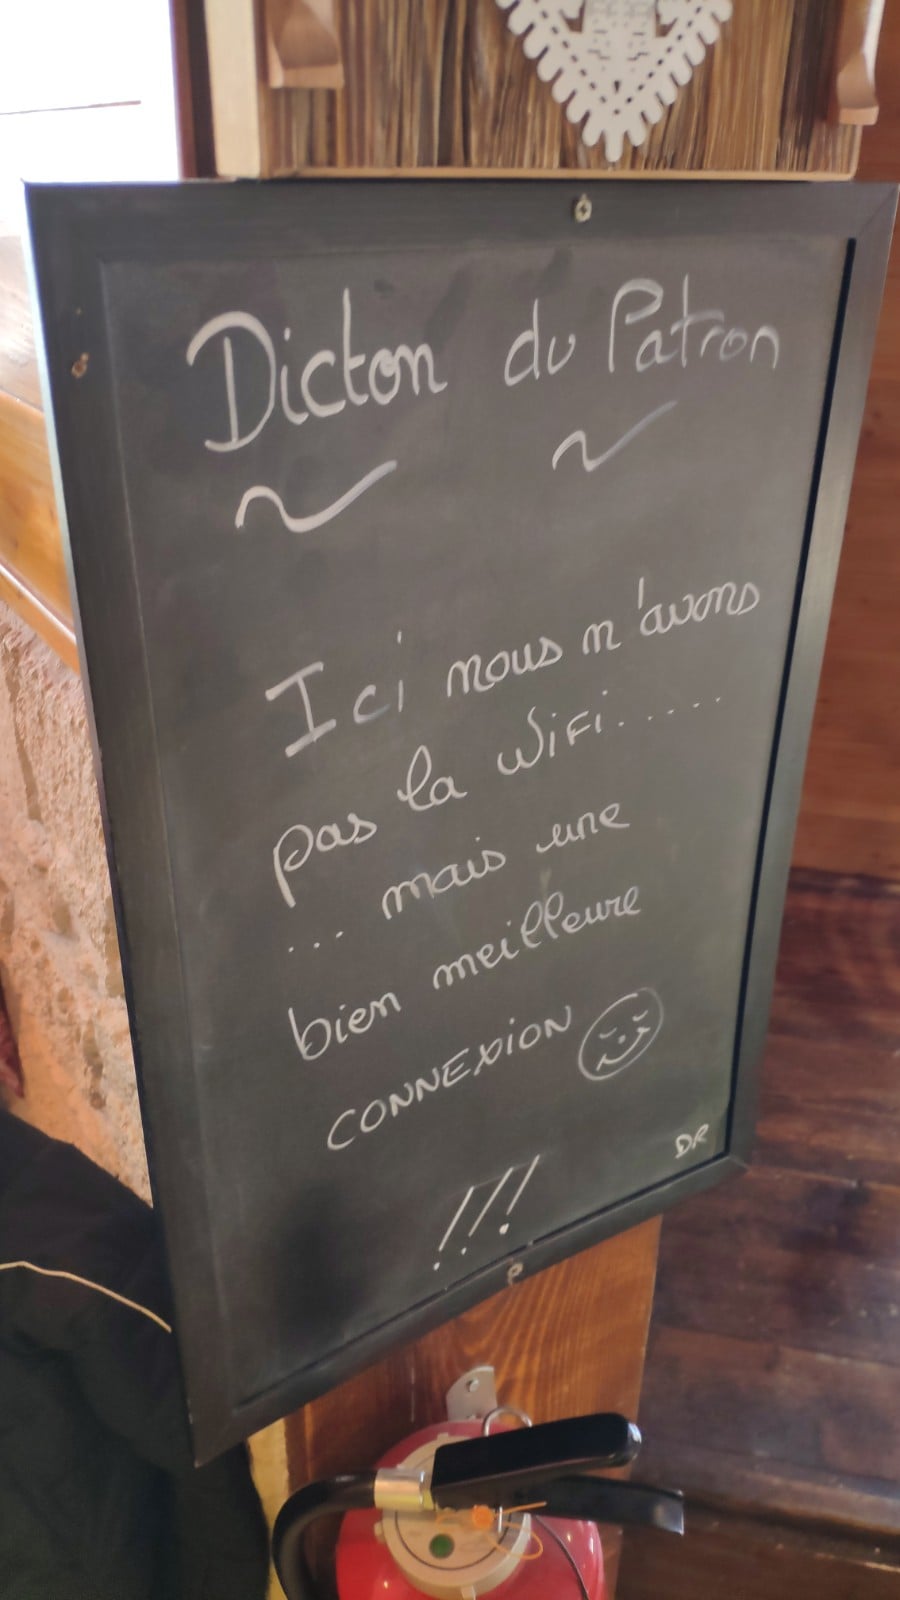 Dicton du Patron
Ici nous n'avons
pas la WiFi......
... mais une
bien meilleure
CONNEXION
DR
!!!